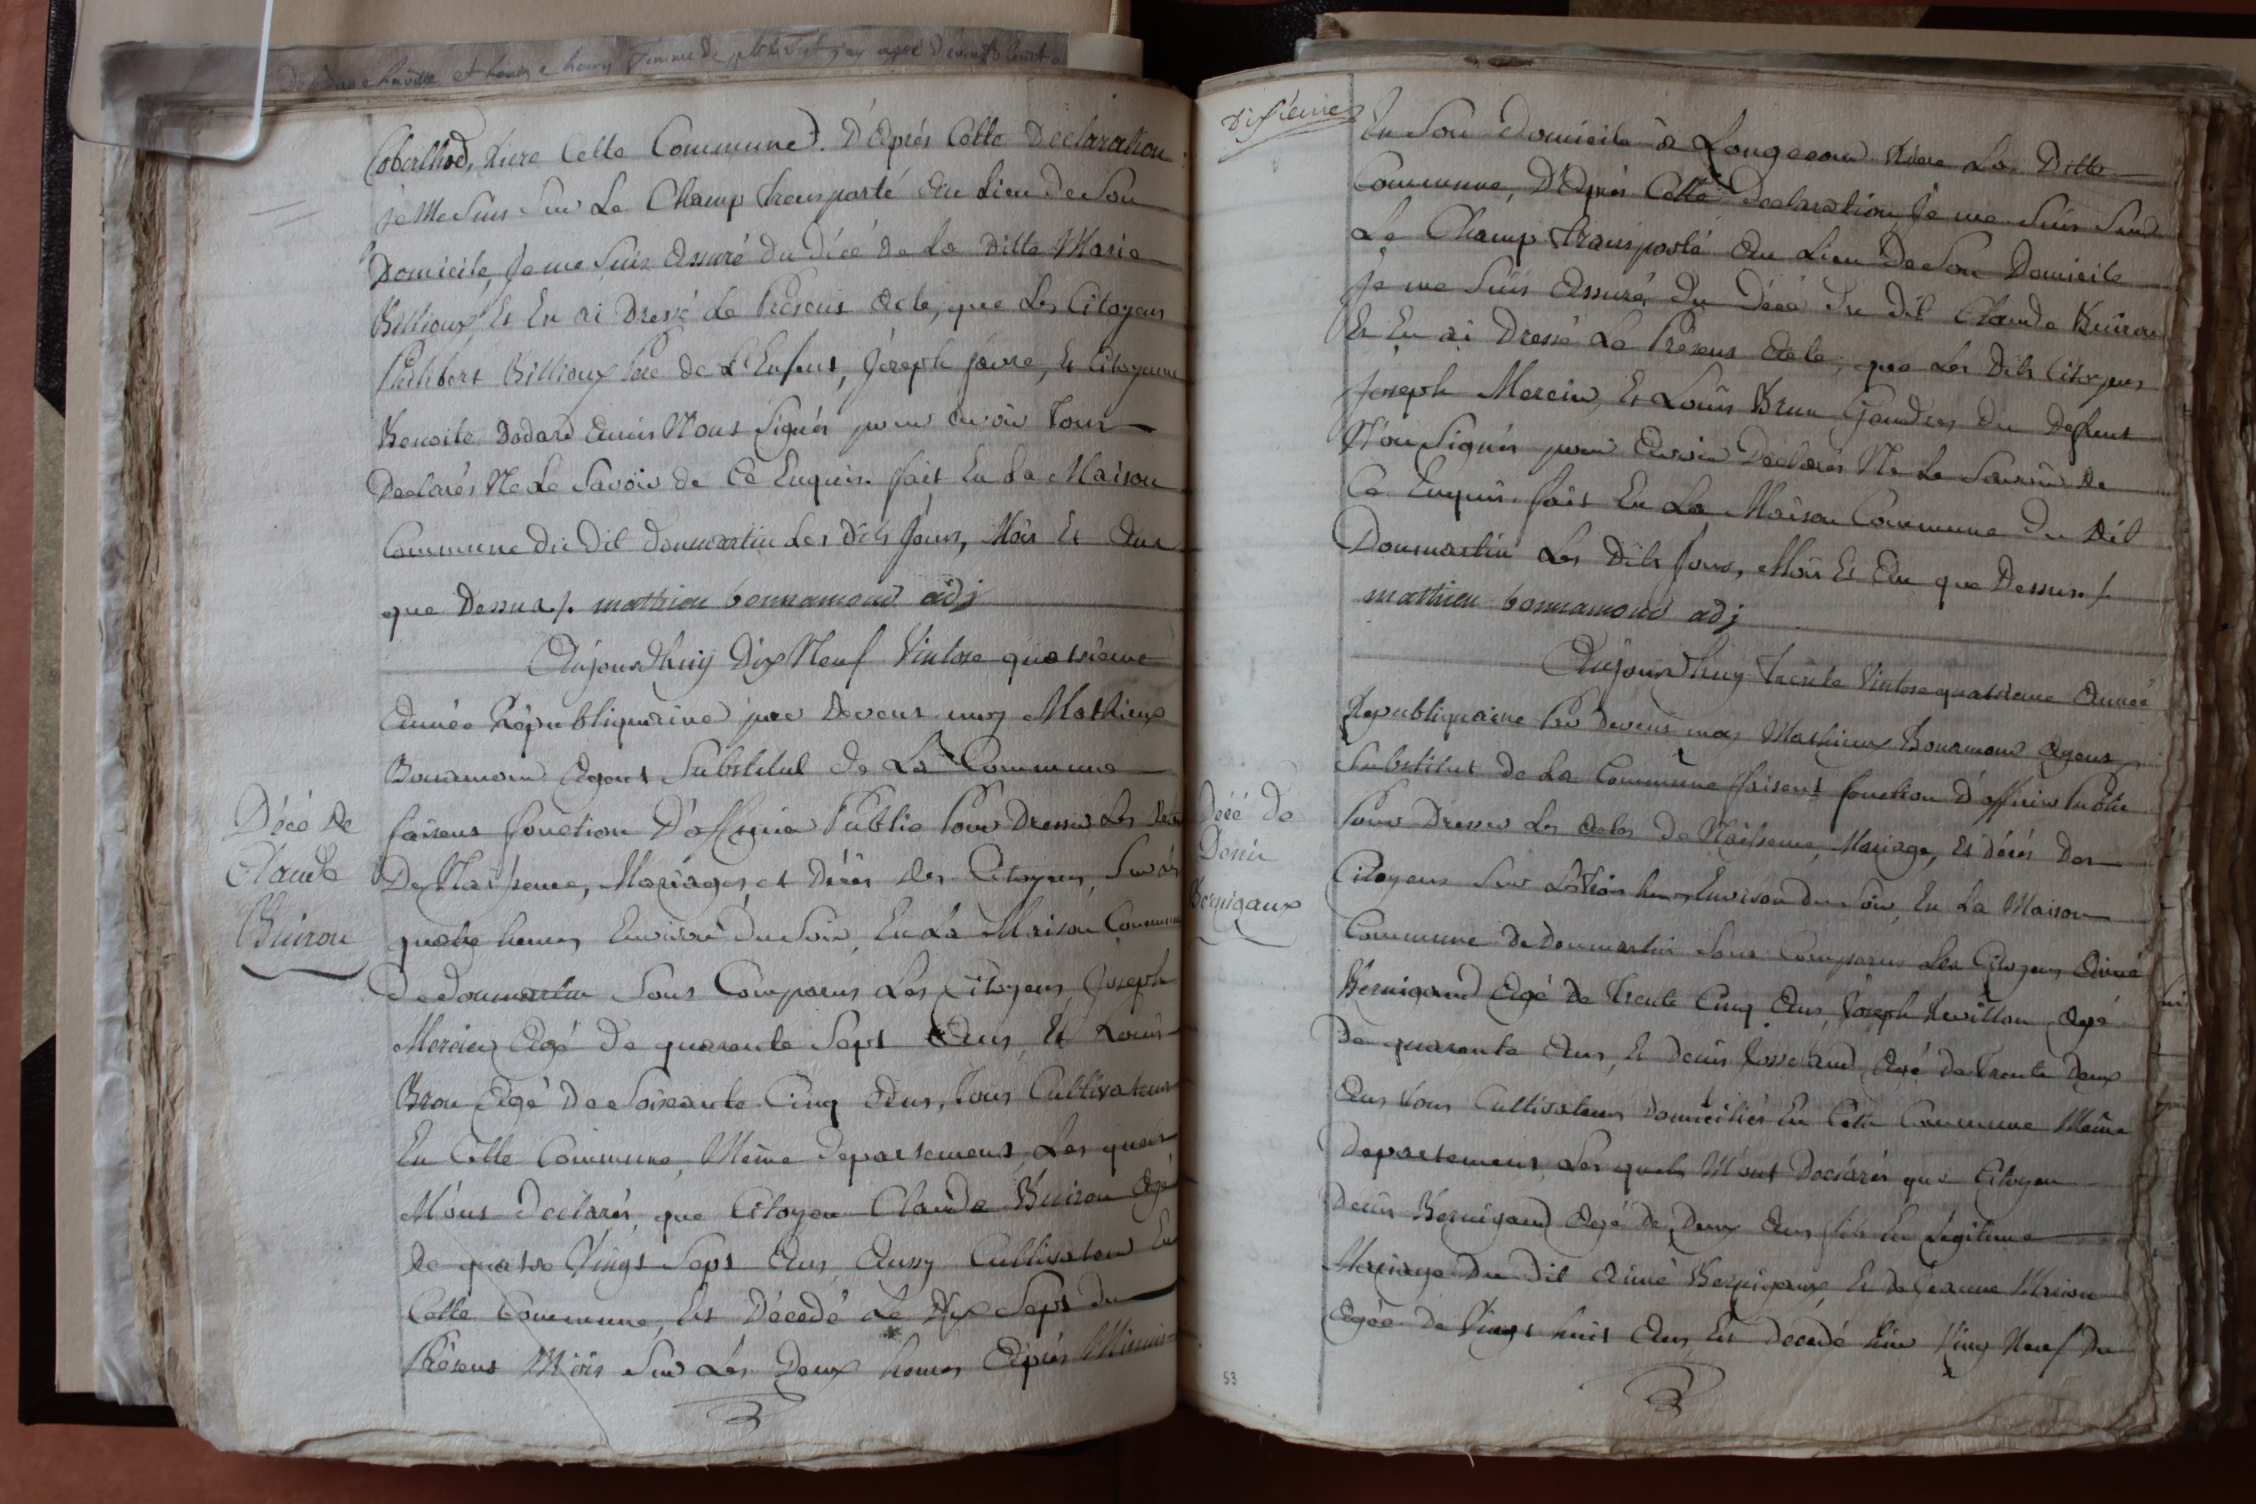 Rière Cette Commune. D'Après Cette Declaration
je Me Suis Sur Le Champ transporté Au Lieu De Son
Domicile, Je me Suis Assuré Du Décé De La Ditte Marie
Billioux Et En ai Dressé Le Présent Acte, que Les Citoyens
Philibert Billioux Père De L'Enfant, Joseph favre, Et Citoyenne
Benoite Dodard N'ont Signés pour Avoir Tous
Declarés Ne Le Savoir de Ce Enquis. fait En La Maison
Commune Du Dit Dommartin Les Dits Jours, Mois Et An
que Dessus /. mathieu bonnamour adj
Aujourdhuy Dix Neuf Vintose quatrième
Année Républiquaine par Devent moy Mathieux
Bonamour Agent Substitut De La Commune
faisent fonction D'officier Public Pour Dresser Les Actes
De Naissence, Mariages, et Décés Des Citoyens, Sur les
quatre heures Environ Du Soir, En La Maison Commune
De dommartin Sont Comparus Les Citoyens Joseph
Morcin Agé De quarente Sept Ans, Et Louis
Brun Agé De Soixante Cinq Ans, Tous Cultivateurs
En Cette Commune, Même Departement, Les quels
M'ont Declarés, que Citoyen Claude Buiron Agé
De quatre Vingt Sept Ans Aussy Cultivateur En
Cette Commune, Est Décedé Le Dix Sept Du
Présent Mois Sur Les Deux heures Après Minuit
Décé De
Claude
Buiron
Dixième
En Son Domicile à Longecour Rière La Ditte
Commune, D'Après Cette Declaration Je me Suis Sur
Le Champ transporté Au Lieu De Son Domicile
Je me Suis Assuré Du Décé Du Dit Claude Buiron
Et En ai Dressé Le Présent Acte, que Les Dits Citoyens
Joseph Morcin, Et Louis Brun Gendres Du Deffunt
N'ont Signés pour Avoir Declarés Ne Le Savoir De
Ce Enquis. fait En La Maison Commune Du Dit
Dommartin Les Dits Jours, Mois Et An que Dessus /.
mathieu bonnamour adj
Aujourdhuy Trente Vintose quatrieme Année
Republiquaine Par Devent moy Mathieux Bonamour Agent
Substitut De La Commune faisent fonction D'officier Public
Pour Dresser Les Actes De Naissence, Mariage, Et Décés Des
Citoyens Sur Les trois heures Environ Du Soir, En La Maison
Commune De dommartin Sont Comparus Les Citoyens Aimé
Bernigaud Agé De Trente Cinq Ans, Joseph Revillon Agé
De quarante Ans, Et Denis Josserand Agé De Trente Deux
Ans Tous Cultivateurs Domiciliés En Cette Commune Même
Departement, Les quels M'ont Declarés que Citoyen
Denis Bernigaud Agé De Deux Ans fils En Légitime
Mariage Du Dit Aimé Bernigaux, Et De Jeanne Marion
Agée De Vingt huit Ans Est Decedé hier Ving Neuf Du
Décé De
Denis
Bernigaux
53